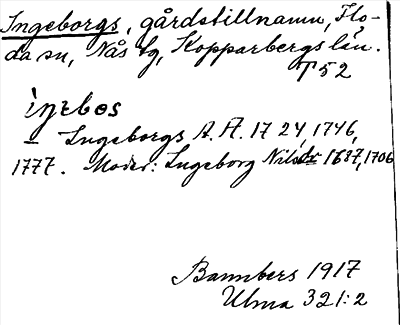 Ingeborgs, gårdstillnamn, Flo-
da sn, Nås tg, Kopparbergs län.
T 52
iŋrbos
— Ingeborgs A. A. 1724, 1746,
1777. Moder: Ingeborg Nilsdr 1687, 1706
Bannbers 1917
Ulma 321:2